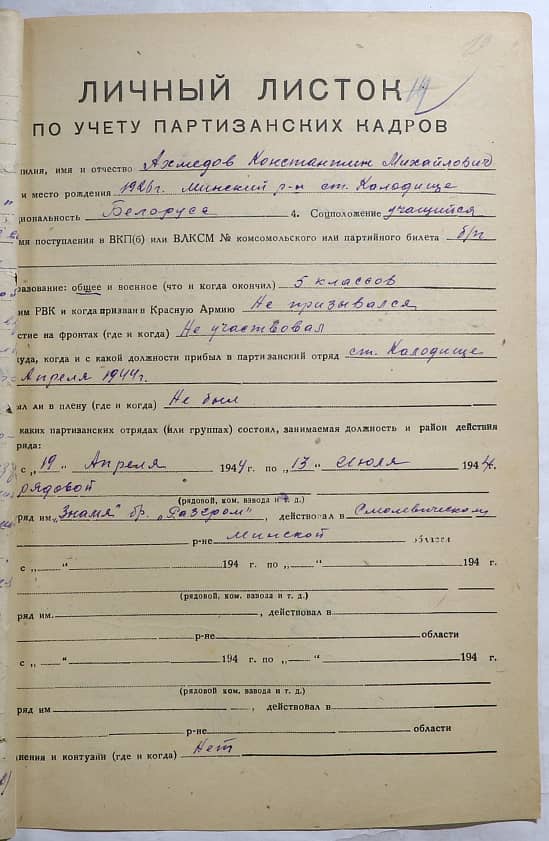 ЛИЧНЫЙ ЛИСТОК
ПО УЧЕТУ ПАРТИЗАНСКИХ КАДРОВ
илия, имя и отчество Ахмедов Константин Михайлович
и место рождения 1926 г. Минский р-н ст. Колодище
циональность Белоруса 4. Соцположение учащийся
мя поступления в ВКП(б) или ВЛКСМ № комсомольского или партийного билета б/п
разование: общее и военное (что и когда окончил) 5 классов
им РВК и когда призван в Красную Армию Не призывался
стие на фронтах (где и когда) Не участвовал
уда, когда и с какой должности прибыл в партизанский отряд ст. Колодище
Апреля 1944г.
ыл ли в плену (где и когда) Не был
каких партизанских отрядах (или группах) состоял, занимаемая должность и район действия
ряда:
с „19" Апреля 1944 г. по „13" Июля 1944 г.
рядовой
(рядовой, ком. взвода и т. д.)
ряд им. „Знамя" бр. „Разгром", действовал в Смолевичском
р-не Минской области
с „ " 194 г. по „ " 194 г.
(рядовой, ком. взвода и т. д.)
ряд им. , действовал в
р-не области
с „ " 194 г. по „ " 194 г.
(рядовой ком. взвода и т. д.)
ряд им , действовал в
р-не области
нения и контузии (где и когда) Нет